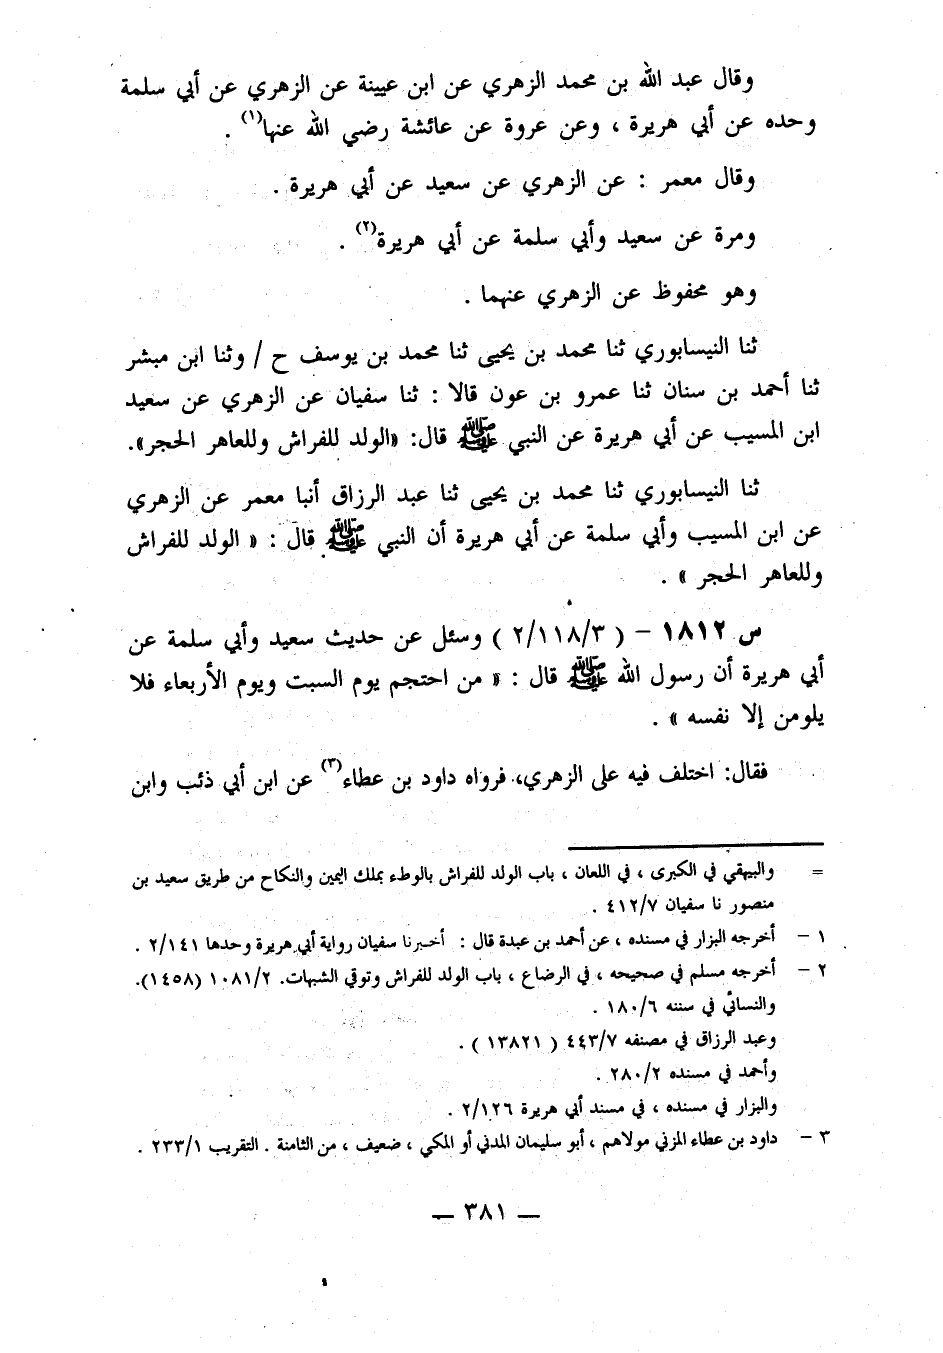 وقال عبد الله بن محمد الزهري عن ابن عيينة عن الزهري عن أبي سلمة
وحده عن أبي هريرة ، وعن عروة عن عائشة رضي الله عنها(١) .
وقال معمر : عن الزهري عن سعيد عن أبي هريرة .
ومرة عن سعيد وأبي سلمة عن أبي هريرة(٢) .
وهو محفوظ عن الزهري عنهما .
ثنا النيسابوري ثنا محمد بن يحيى ثنا محمد بن يوسف ح / وثنا ابن مبشر
ثنا أحمد بن سنان ثنا عمرو بن عون قالا : ثنا سفيان عن الزهري عن سعيد
ابن المسيب عن أبي هريرة عن النبي ﷺ قال: «الولد للفراش وللعاهر الحجر».
ثنا النيسابوري ثنا محمد بن يحيى ثنا عبد الرزاق أنبا معمر عن الزهري
عن ابن المسيب وأبي سلمة عن أبي هريرة أن النبي ﷺ قال : « الولد للفراش
وللعاهر الحجر » .
س ١٨١٢ – ( ٢/١١٨/٣ ) وسئل عن حديث سعيد وأبي سلمة عن
أبي هريرة أن رسول الله ﷺ قال : « من احتجم يوم السبت ويوم الأربعاء فلا
يلومن إلا نفسه » .
فقال: اختلف فيه على الزهري، فرواه داود بن عطاء(٣) عن ابن أبي ذئب وابن
= والبيهقي في الكبرى ، في اللعان ، باب الولد للفراش بالوطء بملك اليمين والنكاح من طريق سعيد بن
منصور نا سفيان ٤١٢/٧ .
١ – أخرجه البزار في مسنده ، عن أحمد بن عبدة قال : أخبرنا سفيان رواية أبي هريرة وحدها ٢/١٤١ .
٢ – أخرجه مسلم في صحيحه ، في الرضاع ، باب الولد للفراش وتوقي الشبهات. ١٠٨١/٢ (١٤٥٨).
والنسائي في سننه ١٨٠/٦ .
وعبد الرزاق في مصنفه ٤٤٣/٧ ( ١٣٨٢١ ) .
وأحمد في مسنده ٢٨٠/٢ .
والبزار في مسنده ، في مسند أبي هريرة ٢/١٢٦ .
٣ – داود بن عطاء المزني مولاهم ، أبو سليمان المدني أو المكي ، ضعيف ، من الثامنة . التقريب ٢٣٣/١ .
— ٣٨١ —